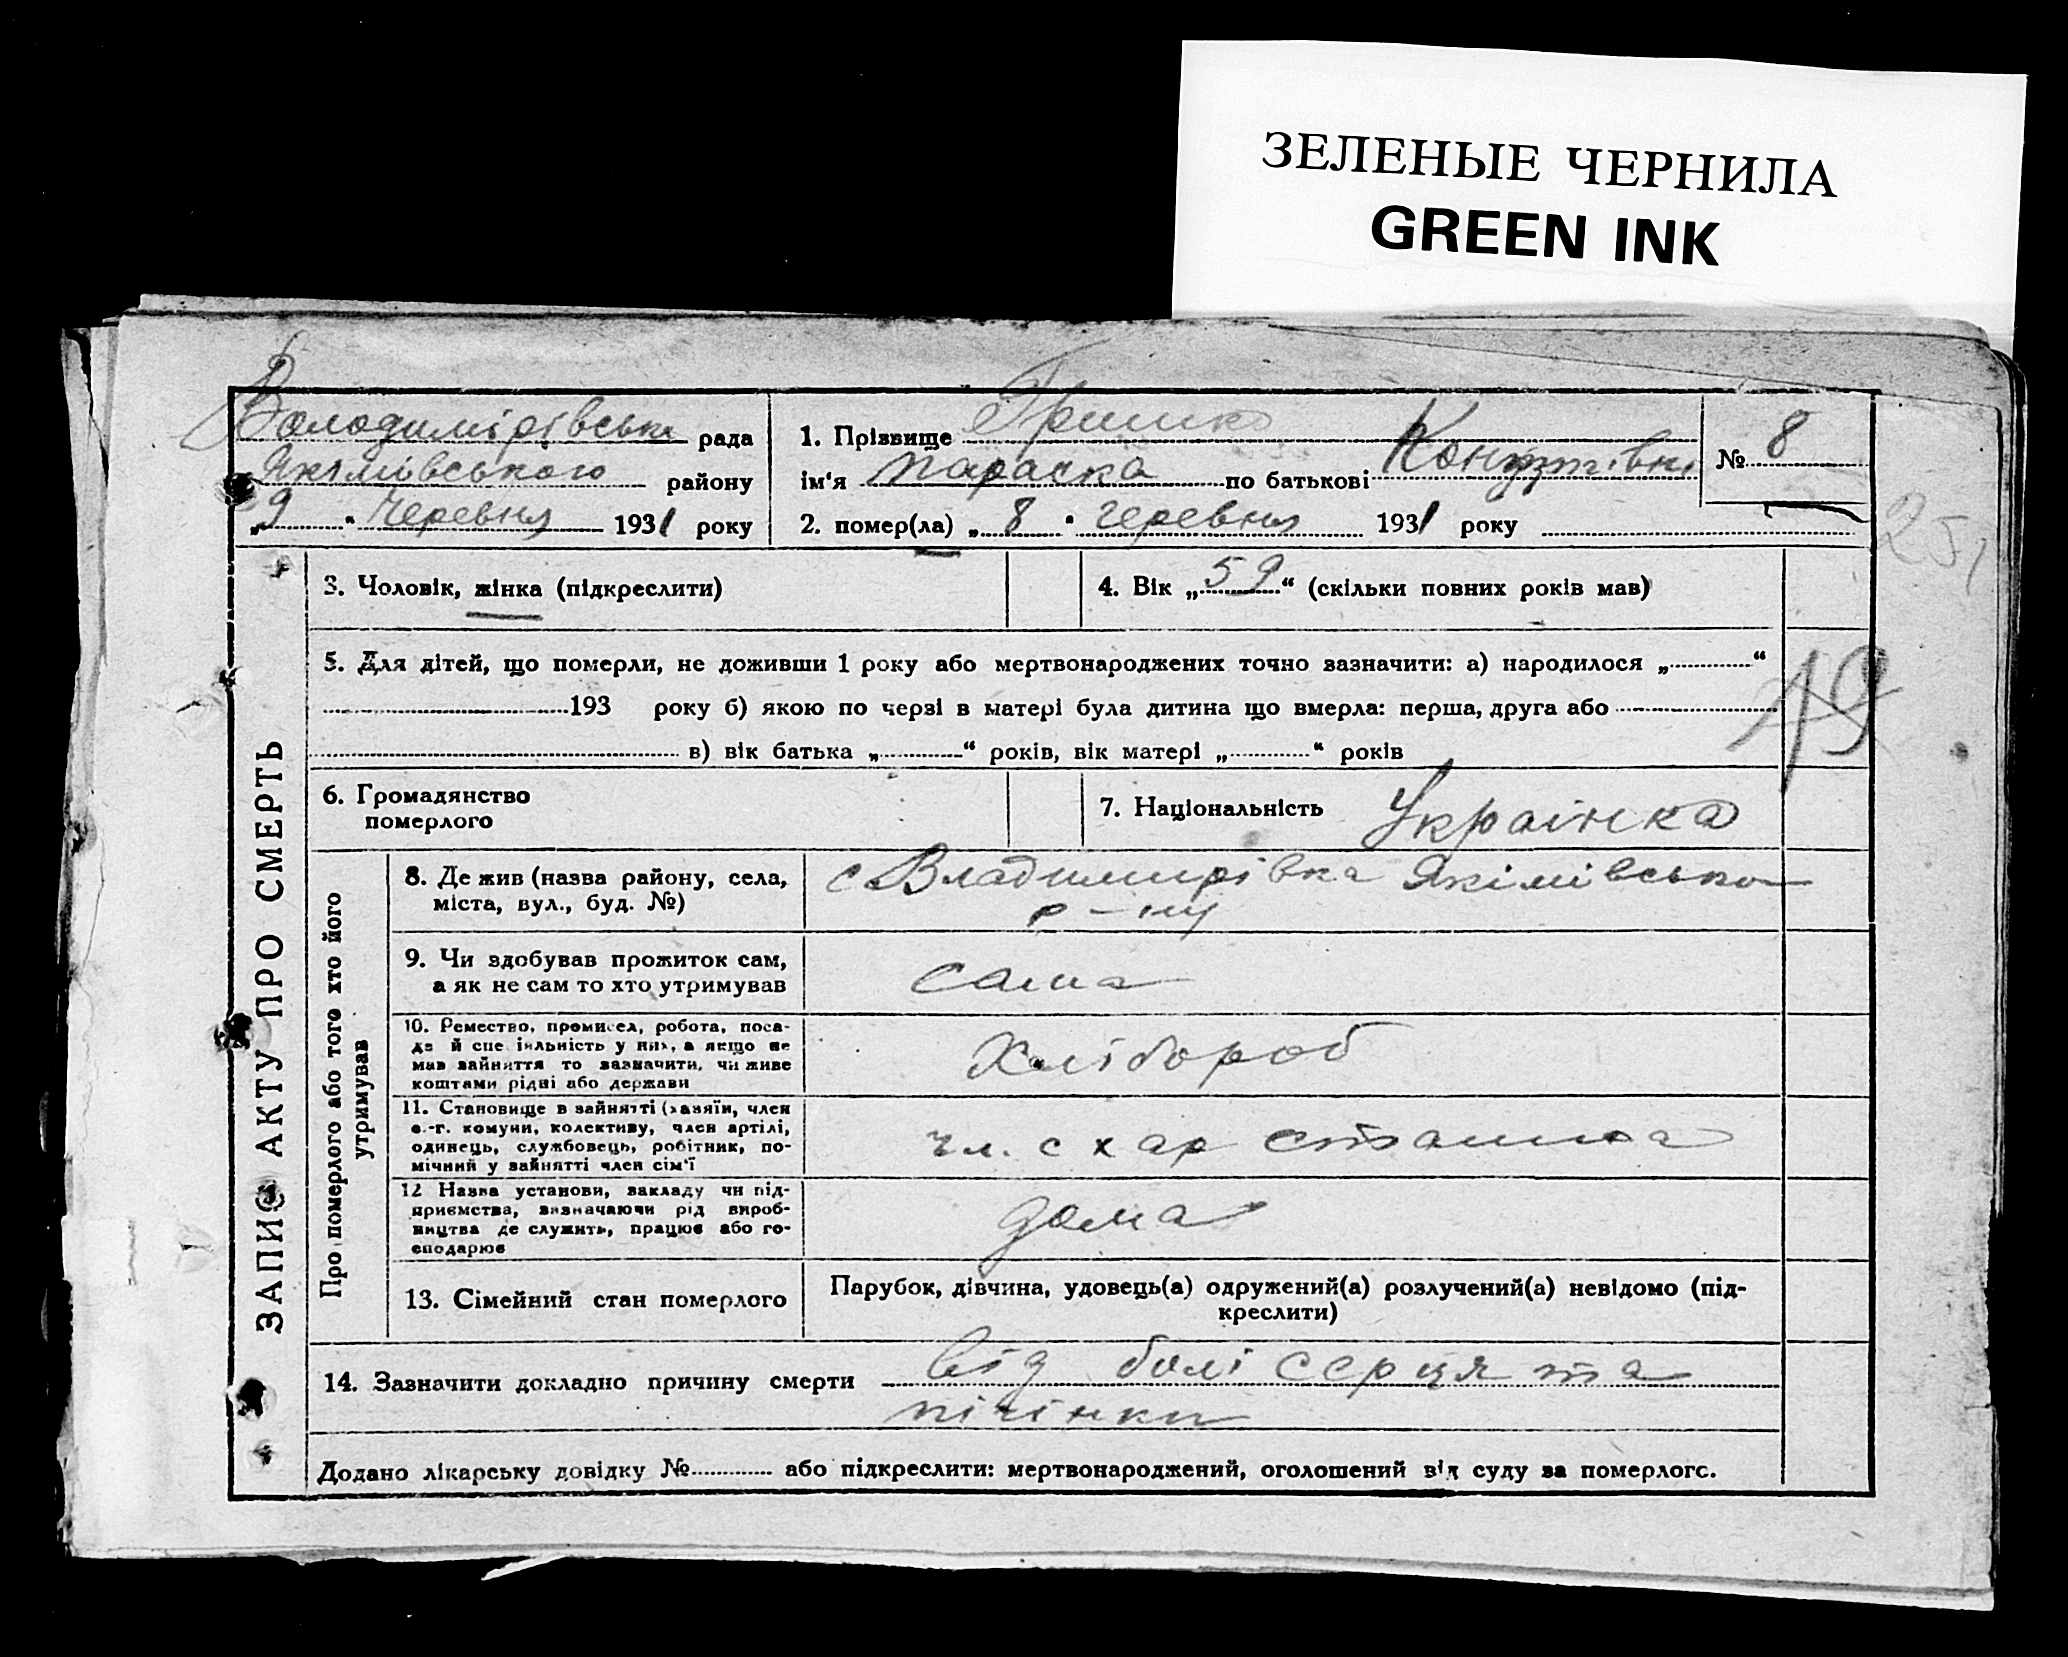 ЗЕЛЕНЫЕ ЧЕРНИЛА
GREEN INK
Володимірівська рада
Якімівського району
„9" Червня 1931 року
1. Прізвище Гришко
ім'я Параска по батькові
№ 8
2. помер(ла) „8" червня 1931 року
25
ЗАПИС АКТУ ПРО СМЕРТЬ
3. Чоловік, жінка (підкреслити)
4. Вік „59" (скільки повних років мав)
5. Для дітей, що померли, не доживши 1 року або мертвонароджених точно зазначити: а) народилося „ "
193 року б) якою по черзі в матері була дитина що вмерла: перша, друга або
в) вік батька „ " років, вік матері „ " років
19
6. Громадянство
померлого
7. Національність Українка
Про померлого або того хто його
утримував
8. Де жив (назва району, села,
міста, вул., буд. №)
с Владимирівка Якімівсько
р-ну
9. Чи здобував прожиток сам,
а як не сам то хто утримував
сама
10. Ремество, промисел, робота, поса-
да й спеціяльність у них, а якщо не
мав зайняття то зазначити, чи живе
коштами рідні або держави
Хлібороб
11. Становище в зайнятті (хазяїн, член
с.-г. комуни, колективу, член артілі,
одинець, службовець, робітник, по-
мічний у зайнятті член сім'ї
чл. с хар
12 Назва установи, закладу чи під-
приємства, визначаючи рід вироб-
ництва де служить, працює або го-
сподарює
дома
13. Сімейний стан померлого
Парубок, дівчина, удовець(а) одружений(а) розлучений(а) невідомо (під-
креслити)
14. Зазначити докладно причину смерти від болі серця та
пічінки
Додано лікарську довідку № або підкреслити: мертвонароджений, оголошений від суду за померлого.